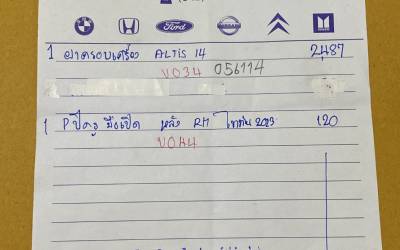 Ford
NISSAN
1 ฝาครอบเครื่อง ALTIS 14 2,487
V034 056114
1 Pปิดรู มือเปิด หลัง RH ไททัน 2003 120
V044